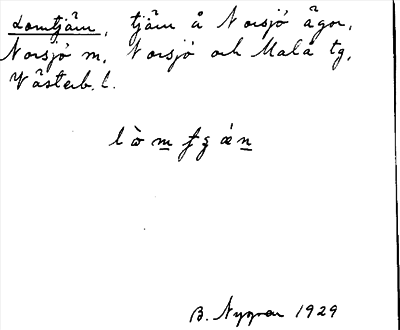 Lomtjäm, tjäm å Norsjö ägor,
Norsjö m, Norsjö och Malå tg,
Västerb. l.
B. Nygren 1929